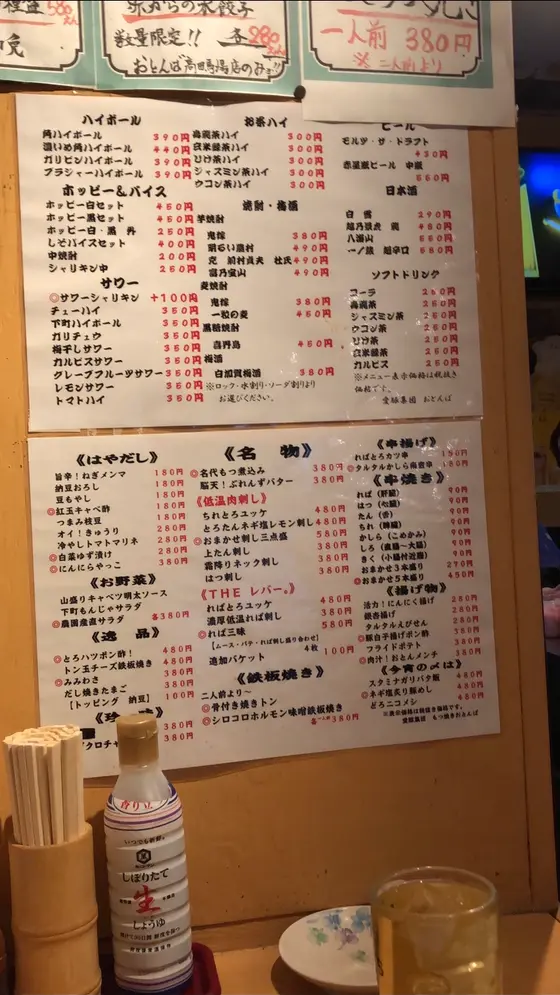 580えん
赤からの水餃子
数量限定!! 各280えん
おとんば高田馬場店のみ!!
一人前 380円
※二人前より
ハイボール
角ハイボール 390円
濃いめ角ハイボール 440円
ガリビンハイボール 390円
ブラジャーハイボール 390円
ホッピー&バイス
ホッピー白セット 450円
ホッピー黒セット 450円
ホッピー白・黒 丹 250円
しそバイスセット 400円
中焼酎 200円
シャリキン中 250円
サワー
◎サワーシャリキン +100円
チューハイ 350円
下町ハイボール 350円
ガリチュウ 350円
梅干しサワー 350円
カルピスサワー 350円
グレープフルーツサワー 350円
レモンサワー 350円
トマトハイ 350円
お茶ハイ
烏龍茶ハイ 300円
玄米緑茶ハイ 300円
びけ茶ハイ 300円
ジャスミン茶ハイ 300円
ウコン茶ハイ 300円
焼酎・梅酒
芋焼酎
鬼嫁 380円
明るい農村 490円
克 前村貞夫 杜氏 490円
富乃宝山 490円
麦焼酎
鬼嫁 380円
一粒の麦 450円
黒糖焼酎
喜界島 450円
梅酒
白加賀梅酒 380円
※ロック・水割り・ソーダ割りより
お選びください。
ビール
モルツ・ザ・ドラフト
450円
赤星瓶ビール 中瓶
550円
日本酒
白雪 290円
越乃景虎 龍 480円
八海山 550円
一ノ蔵 超辛口 580円
ソフトドリンク
コーラ 250円
烏龍茶 250円
ジャスミン茶 250円
ウコン茶 250円
びけ茶 250円
玄米緑茶 250円
カルピス 250円
※メニュー表示価格は税抜き
価格です。
愛豚集団 おとんば
《はやだし》
旨辛!ねぎメンマ 180円
納豆おろし 180円
豆もやし 180円
◎紅玉キャベ酢 180円
つまみ枝豆 280円
オイ!きゅうり 280円
冷やしトマトマリネ 280円
◎白菜ゆず漬け 280円
◎にんにらやっこ 380円
《お野菜》
山盛りキャベツ明太ソース
下町もんじゃサラダ
◎農園産直サラダ 各380円
《逸品》
◎とろハツポン酢! 480円
トン玉チーズ鉄板焼き 480円
◎みみわさ 380円
だし焼きたまご 380円
【トッピング 納豆】 100円
《珍味》
380円
380円
《名物》
◎名代もつ煮込み 380円
脳天!ぷれんずバター 380円
《低温肉刺し》
ちれとろユッケ 480円
とろたんネギ塩レモン刺し 480円
◎おまかせ刺し三点盛 580円
上たん刺し 380円
霜降りネック刺し 380円
はつ刺し 380円
《THE レバー。》
ればとろユッケ 480円
濃厚低温れば刺し 380円
◎れば三味 580円
【ムース・パテ・れば刺し盛り合わせ】
追加バケット 4枚 100円
《鉄板焼き》
二人前より〜
◎骨付き焼きトン
◎シロコロホルモン味噌鉄板焼き 各一人前380円
《串揚げ》
ればとろカツ串 150円
◎タルタルかしら南蛮串 180円
《串焼き》
れば(肝臓) 90円
はつ(心臓) 90円
たん(舌) 90円
ちれ(脾臓) 90円
かしら(こめかみ) 90円
しろ(直腸〜大腸) 90円
きく(小腸付近脂) 90円
おまかせ3本盛り 270円
◎おまかせ5本盛り 450円
《揚げ物》
活力!にんにく揚げ 280円
銀杏揚げ 280円
タルタルえびせん 280円
◎豚白子揚げポン酢 380円
フライドポテト 380円
◎肉汁!おとんメンチ 380円
《今宵の〆は》
スタミナガリバタ飯 480円
◎ネギ塩炙り豚めし 480円
どろニコメシ 480円
※表示価格は税抜き価格です。
愛豚集団 もつ焼きおとんば
香り立
いつでも新鮮®
しぼりたて
生
しょうゆ